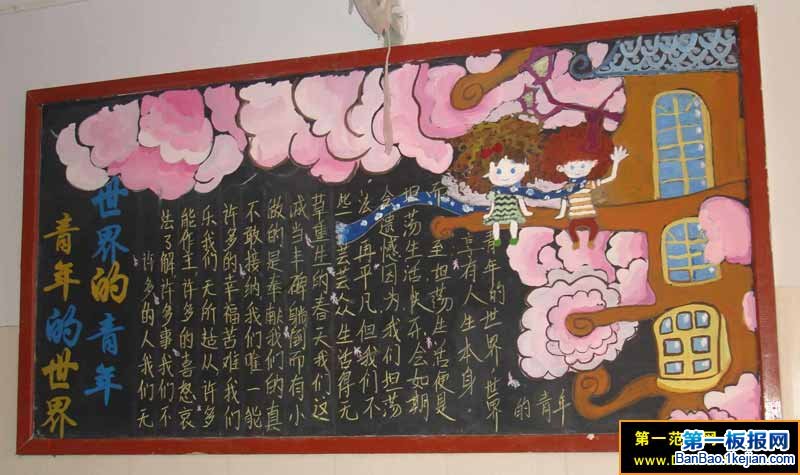 世界的青年
青年的世界
许多的人我们无
法了解许多事我们不
能作主许多的喜怒哀
乐我们无所适从许多
许多的幸福苦难我们
不敢接纳我们唯一能
做的是奉献我们的真
诚当丰碑躺倒而有小
草重生的春天我们这
些芸芸众生活得无
法再平凡但我们不
会遗憾因为我们坦荡
坦荡生活快乐会如期
而至坦荡生活便是
享有人生本身
青年的世界，世界
的青年
第一范
第一板报网
BanBao.1kejian.com